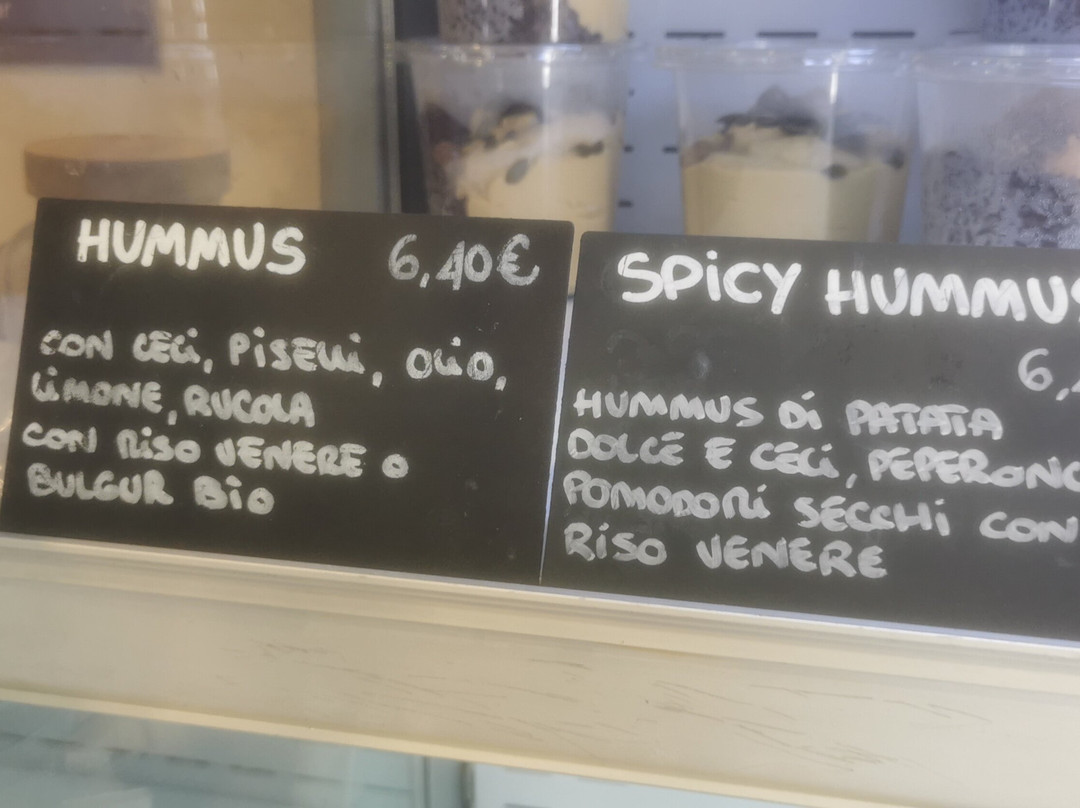 HUMMUS 6,40€
CON CECI, PISELLI, OLIO,
LIMONE, RUCOLA
CON RISO VENERE O
BULGUR BIO
SPICY HUMMUS
6,
HUMMUS DI PATATA
DOLCE E CECI, PEPERONC
POMODORI SECCHI CON
RISO VENERE